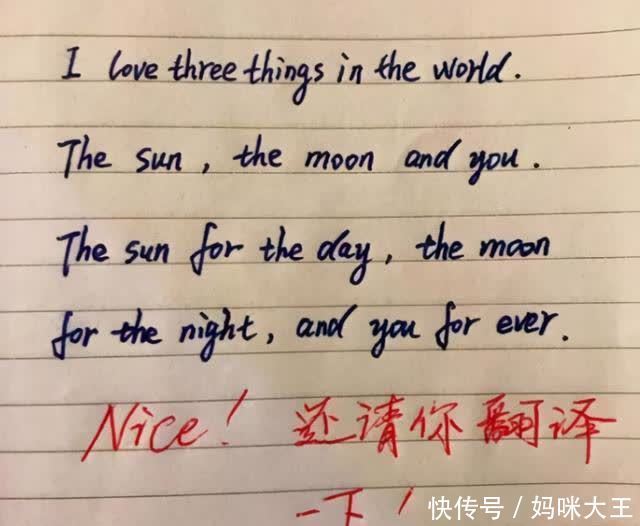 I love three things in the world.
The sun, the moon and you.
The sun for the day, the moon
for the night, and you for ever.
Nice! 还请你翻译
一下!
快传号／妈咪大王